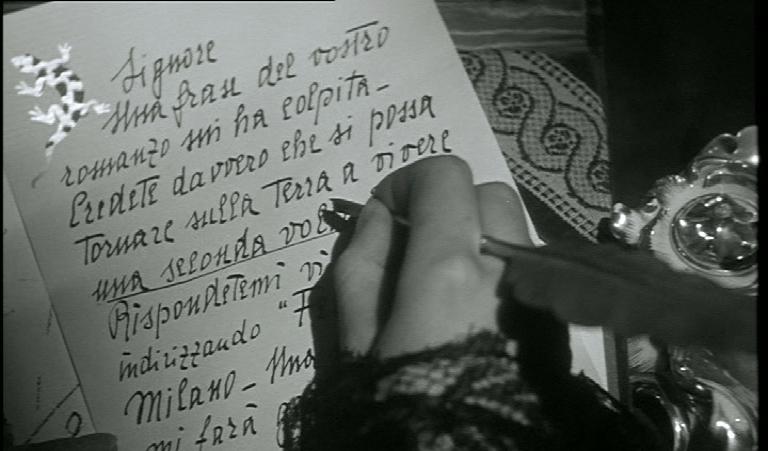 Signore
Una frase del vostro
romanzo mi ha colpita-
Credete davvero che si possa
tornare sulla terra a vivere
una seconda
Rispondetemi
indirizzando "
Milano-
mi farà